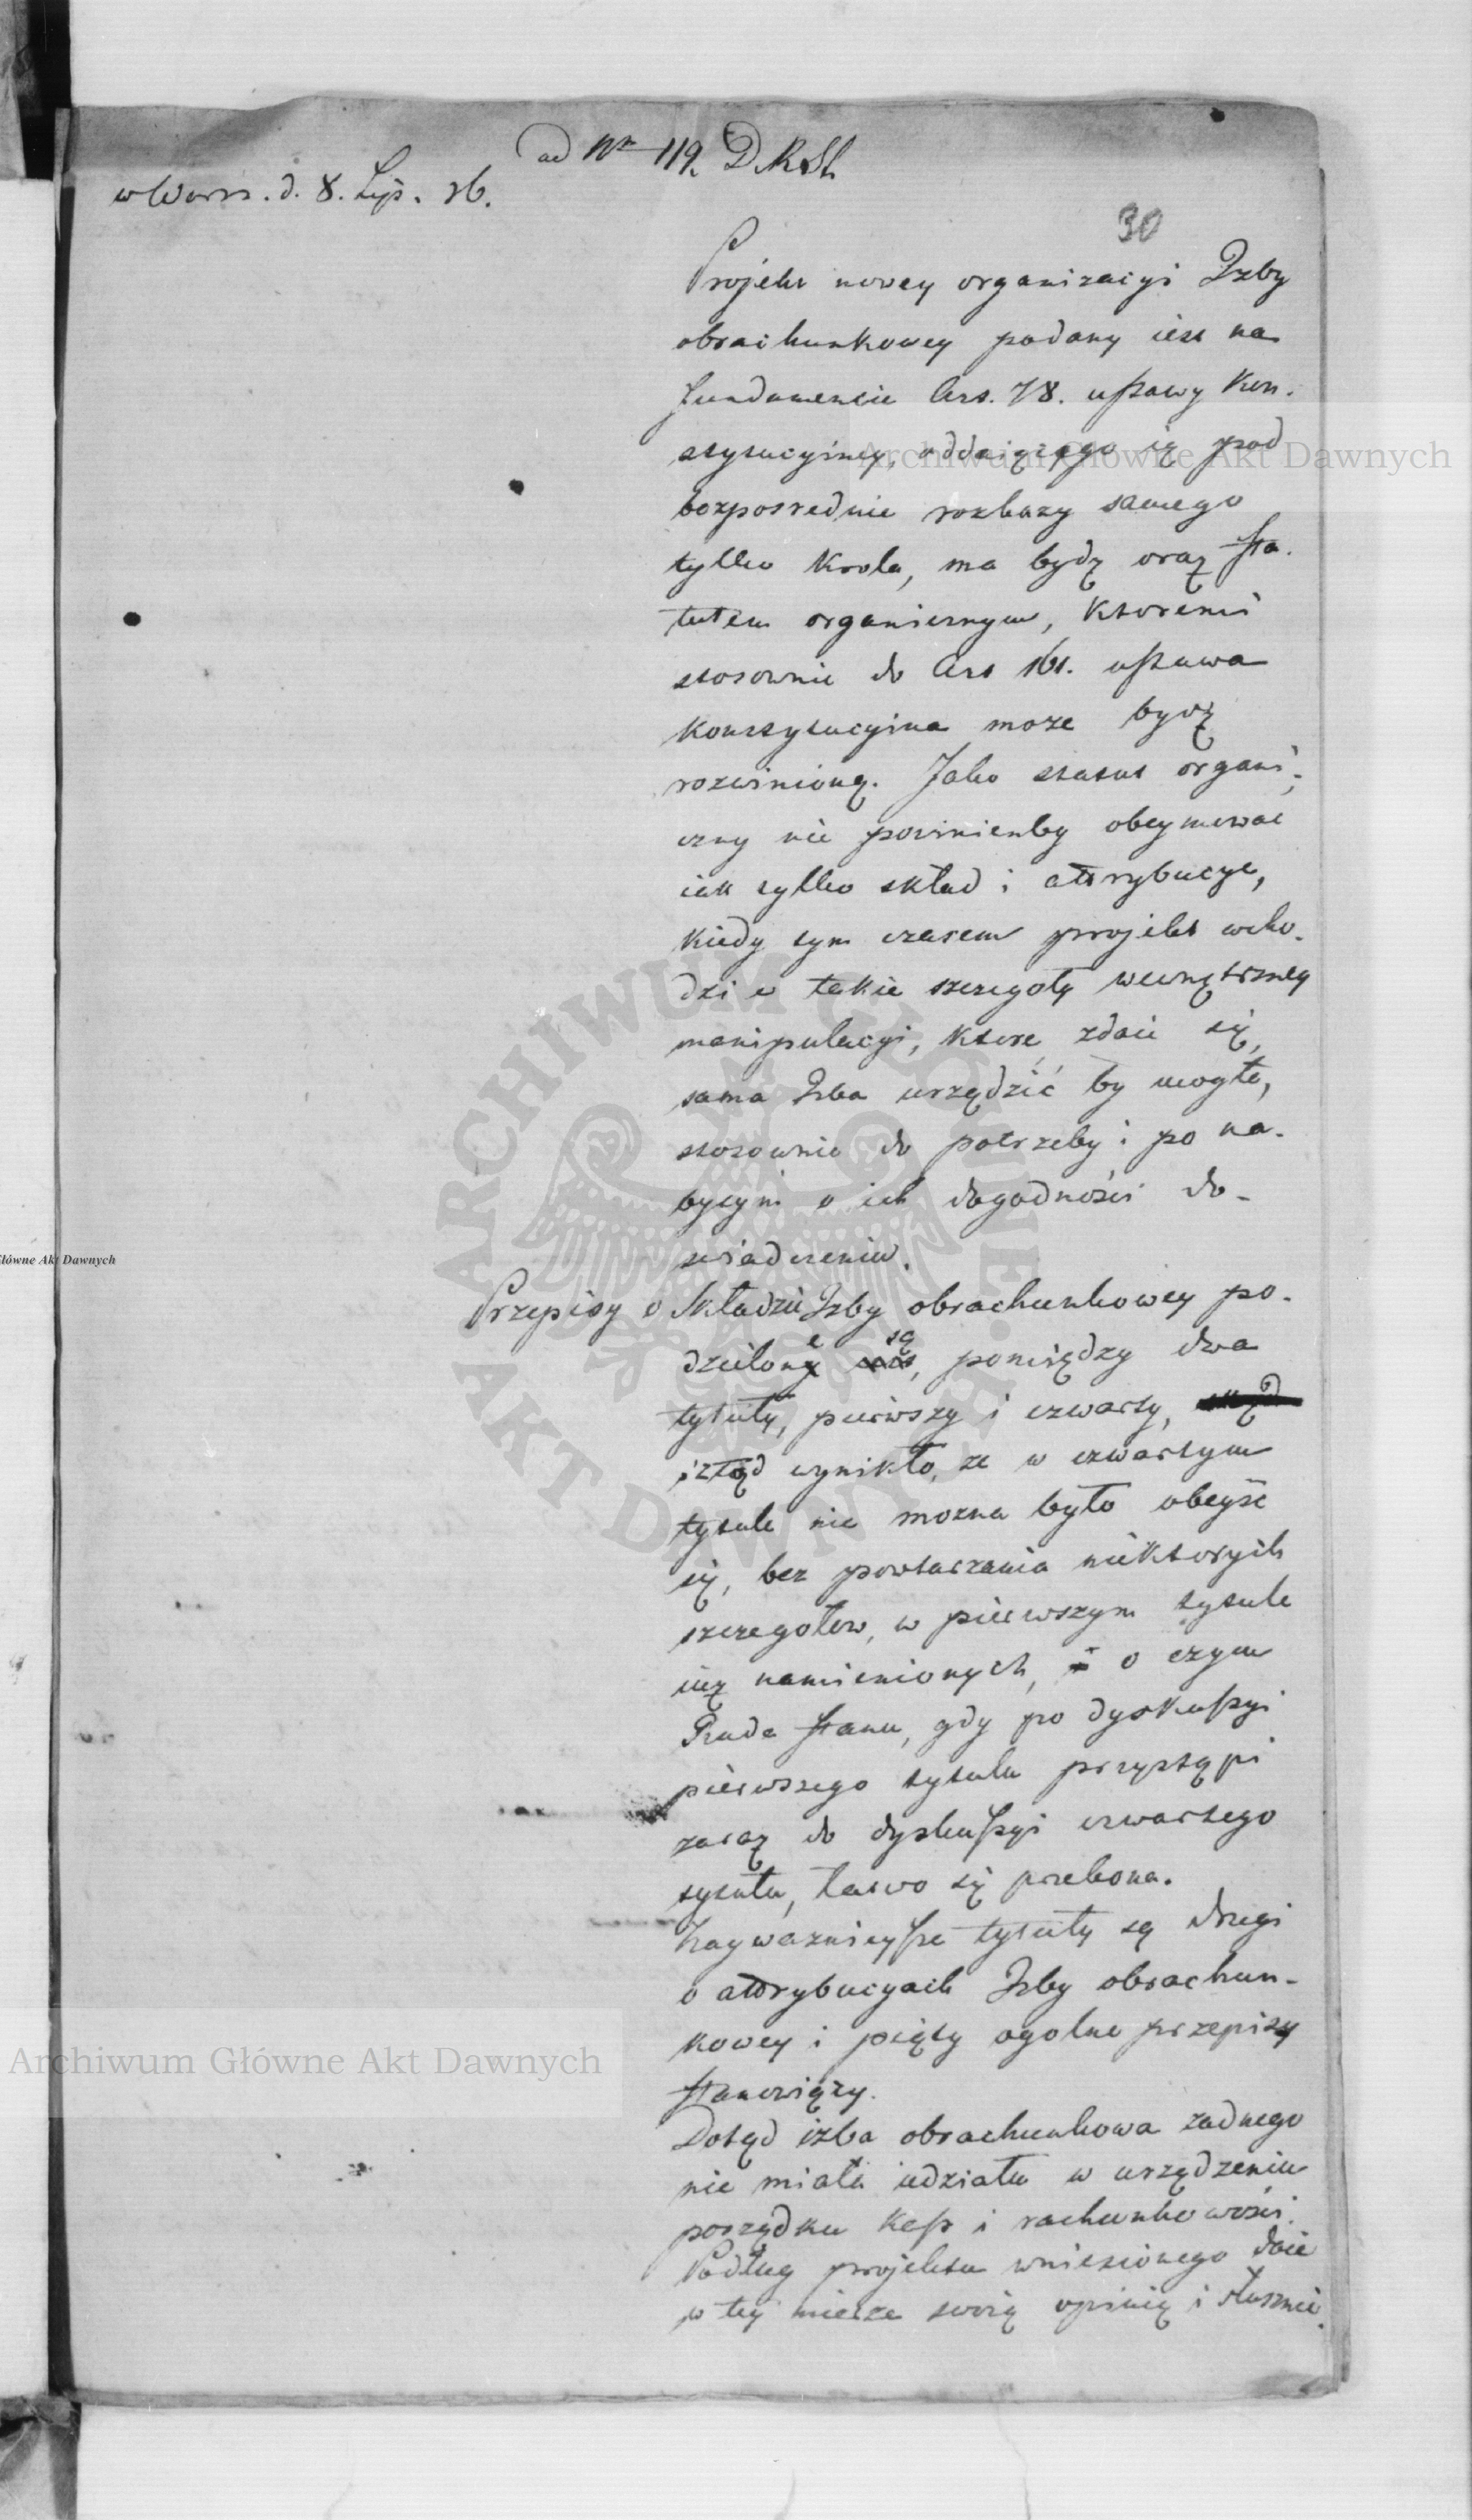 ad Nr 119. D. R. St.
w Wars. d. 8. Lip. 16.
30
Projekt nowey organizacyi Izby
obrachunkowey podany iest na
fundamencie Art. 78. ustawy Kon-
stytucyiney, oddaiącego ią pod
bezposrednie rozkazy samego
tylko Krola, ma bydź oraz sta-
tutem organicznym, ktoremi
stosownie do Art 161. ustawa
Konstytucyina może bydź
rozwinioną. Jako statut organi-
czny nie powinienby obeymować
iak tylko skład i attrybucye,
kiedy tym czasem projekt wcho-
dzi w takie szczegoły wewnętrzney
manipulacyi, ktore, zdaie się,
sama Izba urządzić by mogła,
stosownie do potrzeby i po na-
bytym o ich dogodności do-
świadczeniu.
Przepisy o Składzie Izby obrachunkowey po-
dzielone są, pomiędzy dwa
tytuły, pierwszy i czwarty,
iztąd wynikło, że w czwartym
tytule nie można było obeyść
się, bez powtarzania niektorych
szczegołow, w pierwszym tytule
iuż namienionych, o czym
Rada Stanu, gdy po dyskussyi
pierwszego tytułu przystąpi
zaraz do dyskussyi czwartego
tytułu, łatwo się przekona.
Nayważnieysze tytuły są drugi
o attrybucyach Izby obrachun-
kowey i piąty ogolne przepisy
stanowiący.
Dotąd izba obrachunkowa żadnego
nie miała udziału w urządzeniu
porządku kass i rachunkowości.
Podług projektu wniesionego daie
w tey mierze swoią opinią i słusznie.
Archiwum Główne Akt Dawnych
Główne Akt Dawnych
ARCHIWUM GŁÓWNE AKT DAWNYCH
Archiwum Główne Akt Dawnych